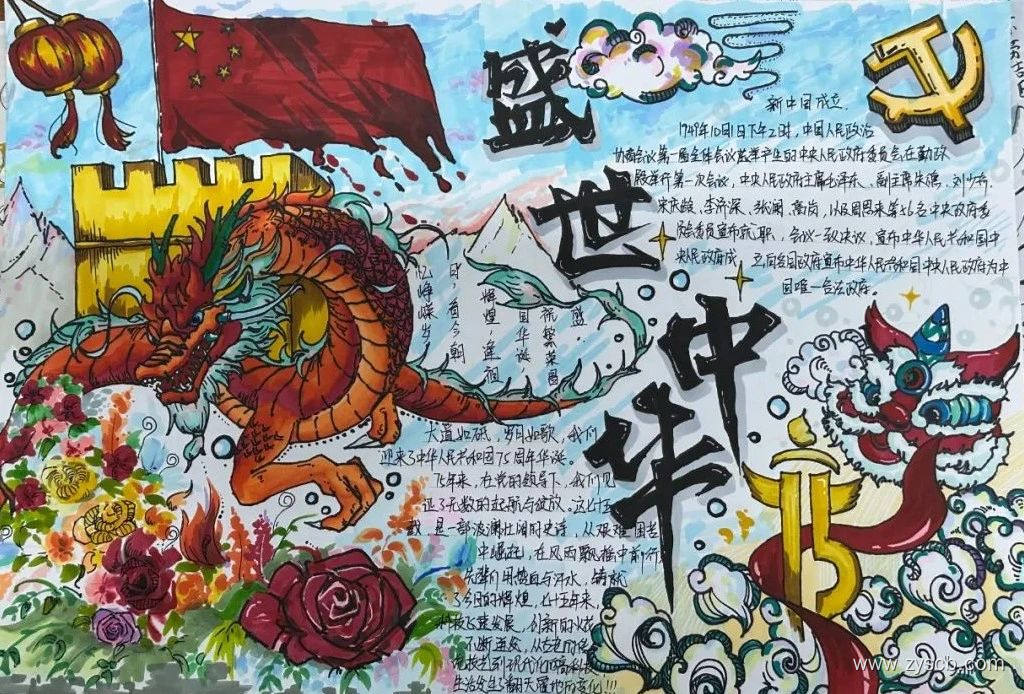 盛世中华
新中国成立
1949年10月1日下午2时，中国人民政治
协商会议第一届全体会议选举产生的中央人民政府委员会在勤政
殿举行第一次会议，中央人民政府主席毛泽东、副主席朱德、刘少奇、
宋庆龄、李济深、张澜、高岗，以及周恩来等56名中央政府委
员会委员宣布就职，会议一致决议，宣布中华人民共和国中
央人民政府成 立向各国政府宣布中华人民共和国中央人民政府为中
国唯一合法政府。
盛，
祝紫菜圆
国华诞，
辉煌，逢祖
日，看今朝
忆峥嵘岁
大道如砥，岁月如歌，我们
迎来了中华人民共和国75周年华诞。
75年来，在党的领导下，我们见
证了无数的起航与绽放。这七十五
载，是一部波澜壮阔的史诗，从艰难困苦
中崛起，在风雨飘摇中前行，
先辈们用热血与汗水，铸就
了今日的辉煌，七十五年来，
科技飞速发展，创新的火花
不断迸发，从古老的传
统技艺到现代化的高科技
生活发生了翻天覆地的变化!!!
75
www.zyscb.com